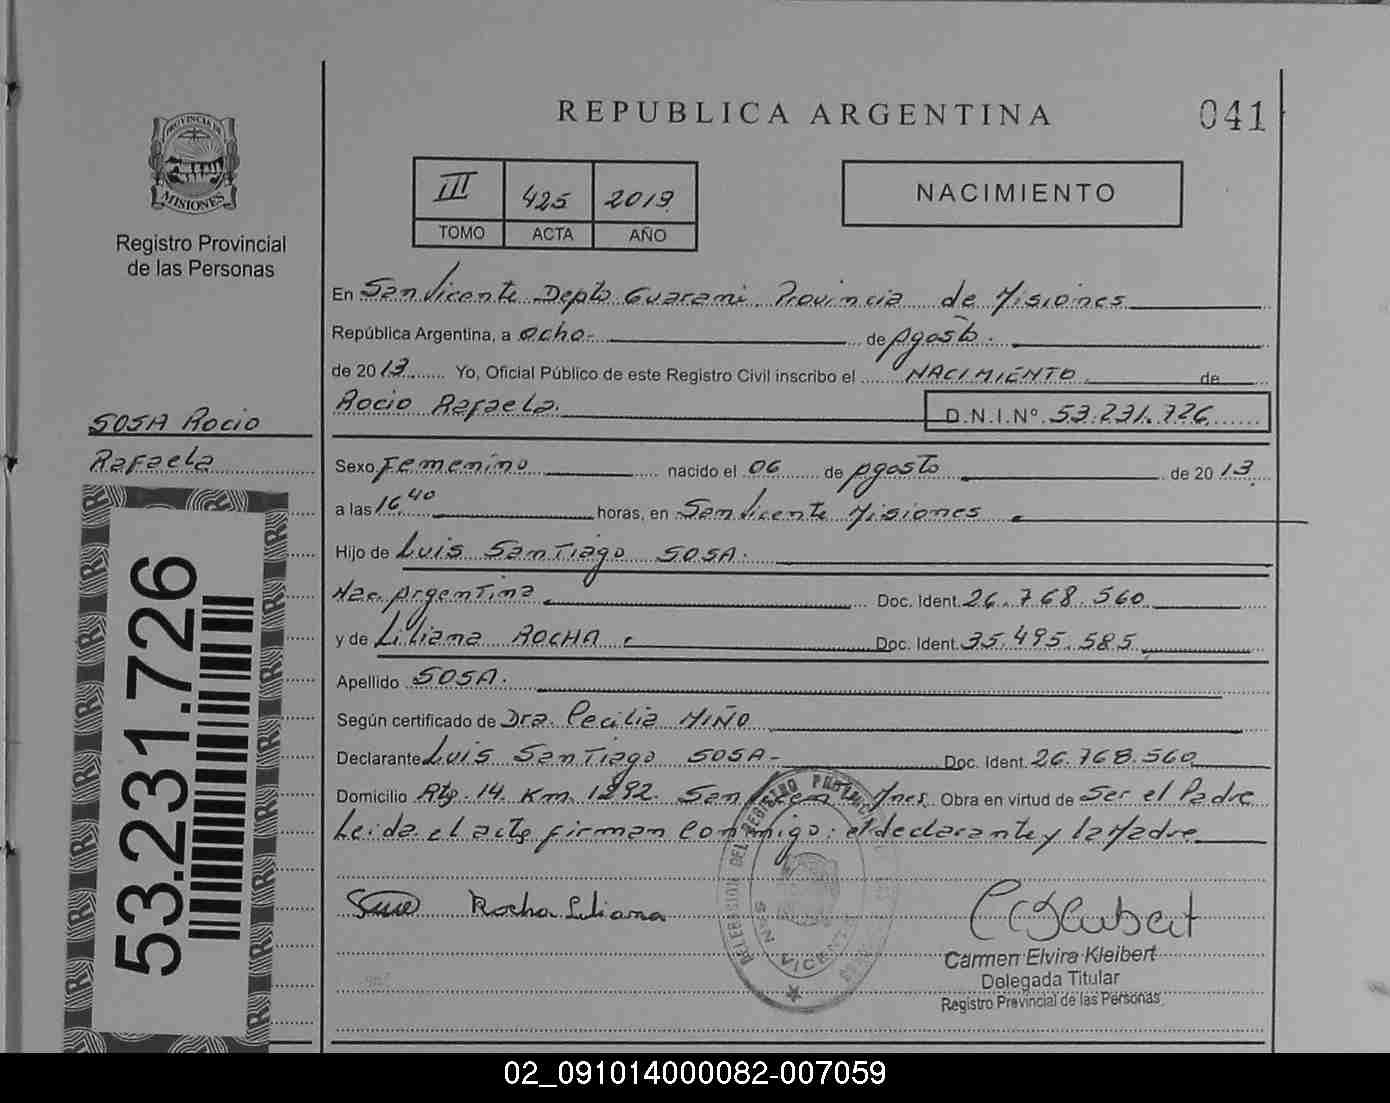 REPUBLICA ARGENTINA
041
PROVINCIA DE
MISIONES
Registro Provincial
de las Personas
III 425 2013
TOMO ACTA AÑO
NACIMIENTO
En San Vicente Depto Guarani Provincia de Misiones
República Argentina, a ocho.- de Agosto.
de 2013 Yo, Oficial Público de este Registro Civil inscribo el NACIMIENTO de
Rocio Rafaela. D.N.I.Nº 53.231.726
SOSA Rocio
Rafaela
Sexo Femenino nacido el 06 de Agosto de 2013
a las 16,40 horas, en San Vicente Misiones
Hijo de Luis Santiago SOSA.
Nac. Argentina Doc. Ident. 26.768.560
y de Liliana ROCHA Doc. Ident. 35.495.585
Apellido SOSA.
Según certificado de Dra. Cecilia MIÑO
Declarante Luis Santiago SOSA- Doc. Ident. 26.768.560
Domicilio Rta. 14 Km. 1292. San Vicen Mnes. Obra en virtud de Ser el Padre
Leida el acta firman Conmigo: el declarante y la Madre
53.231.726
Rocha Liliana
DELEGACION DEL REGISTRO PROVINCIAL
SAN VICENTE
Carmen Elvira Kleibert
Delegada Titular
Registro Provincial de las Personas
02_091014000082-007059